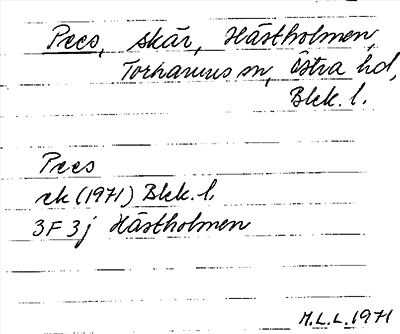 Prees, skär, Hästholmen,
Torhamns sn, Östra hd,
Blek. l.
Prees
ek (1971) Blek. l.
3F 3j Hästholmen
M.L.L. 1971